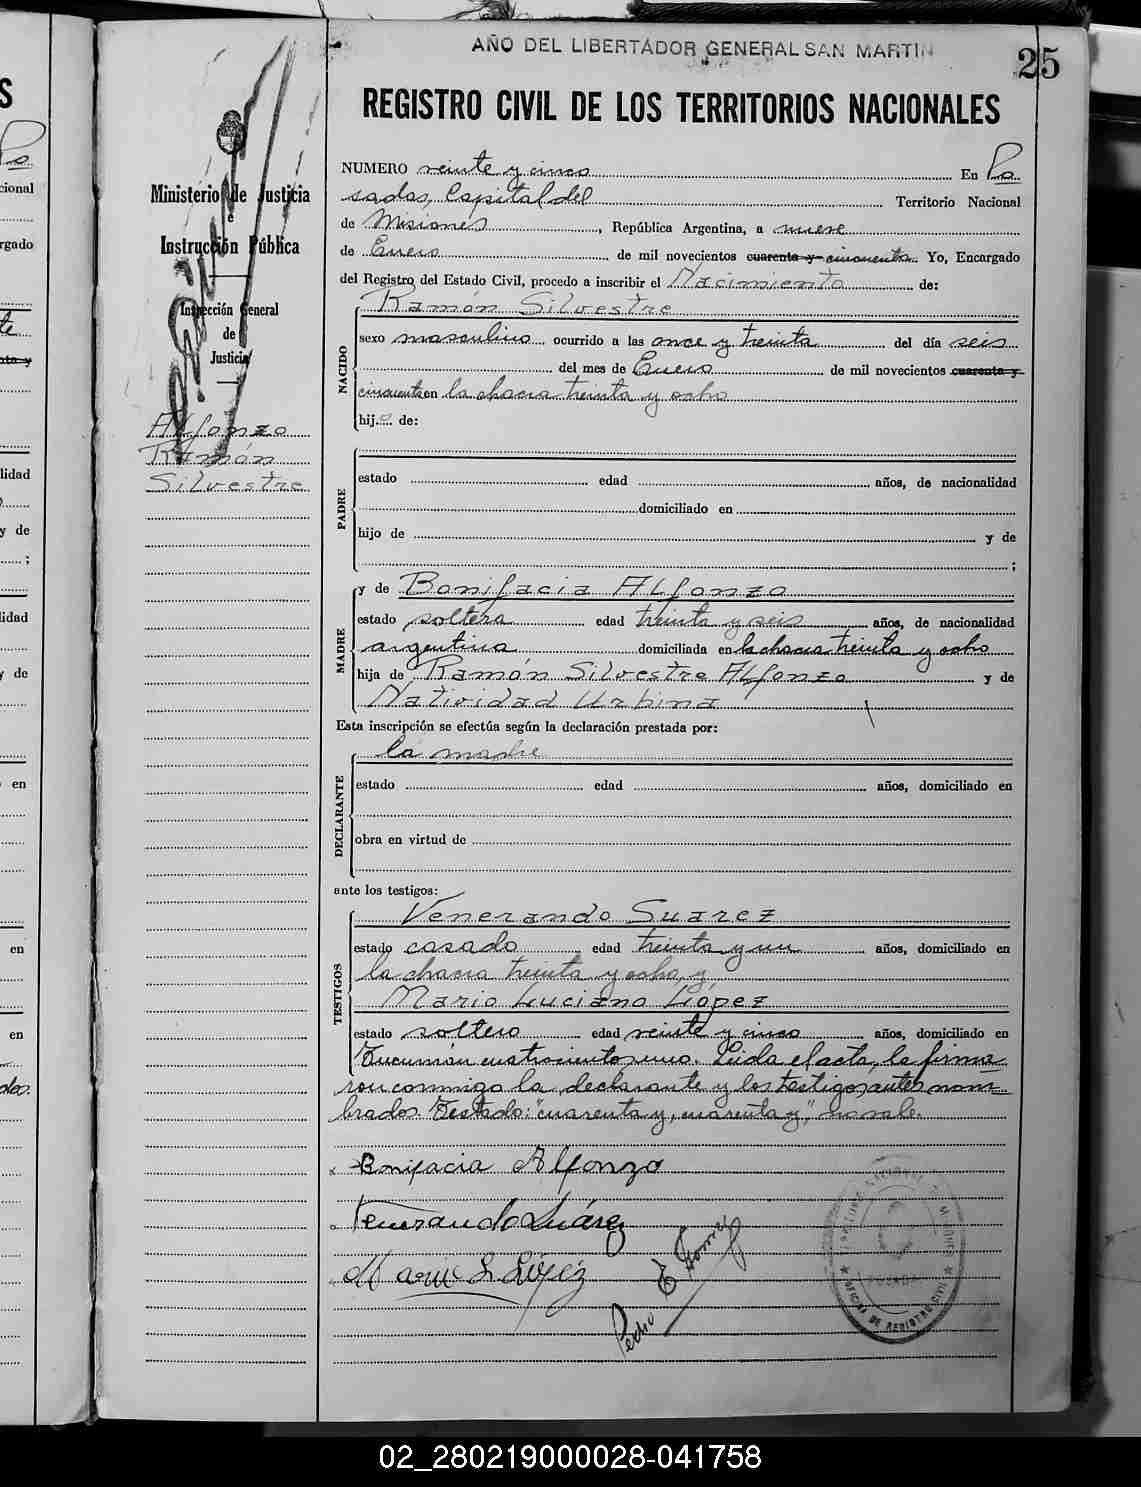 AÑO DEL LIBERTADOR GENERAL SAN MARTIN
25
REGISTRO CIVIL DE LOS TERRITORIOS NACIONALES
Ministerio de Justicia
e
Instrucción Pública
Inspección General
de
Justicia
Alfonzo
Ramón
Silvestre
NUMERO veinte y cinco En Po
sadas, Capital del Territorio Nacional
de Misiones, República Argentina, a nueve
de Enero de mil novecientos cuarenta y cincuenta. Yo, Encargado
del Registro del Estado Civil, procedo a inscribir el Nacimiento de:
Ramón Silvestre
NACIDO
sexo masculino ocurrido a las once y treinta del día seis
del mes de Enero de mil novecientos cuarenta y
cincuenta en la chacra treinta y ocho
hijo de:
PADRE
estado edad años, de nacionalidad
domiciliado en
hijo de y de
;
MADRE
y de Bonifacia Alfonzo
estado soltera edad treinta y seis años, de nacionalidad
argentina domiciliada en la chacra treinta y ocho
hija de Ramón Silvestre Alfonzo y de
Natividad Urbina
Esta inscripción se efectúa según la declaración prestada por:
la madre
DECLARANTE
estado edad años, domiciliado en
obra en virtud de
ante los testigos:
Venerando Suarez
TESTIGOS
estado casado edad treinta y un años, domiciliado en
la chacra treinta y ocho y
Mario Luciano López
estado soltero edad veinte y cinco años, domiciliado en
Tucumán cuatrocientos uno. Leida el acta, la firma
ron conmigo la declarante y los testigos antes nom
brados. Testado: "cuarenta y, cuarenta y", no vale.
Bonifacia Alfonzo
Venerando Suárez
Mario L. López
Pedro E Gomez
OFICINA DE REGISTRO CIVIL
02_280219000028-041758